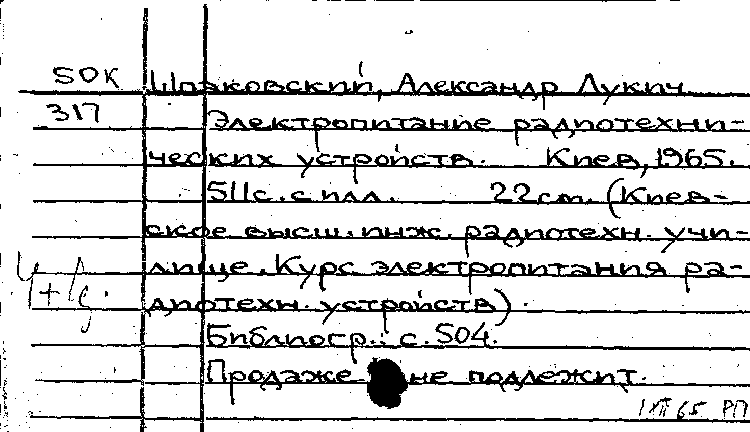 50К Шпаковский, Александр Лукич
317 Электропитание радиотехни-
ческих устройств. Киев, 1965.
511с. с илл. 22см. (Киев-
ское высш. инж. радиотехн. учи-
лище. Курс электропитания ра-
диотехн. устройств).
Библиогр.: с. 504.
Продаже не подлежит.
65 РП